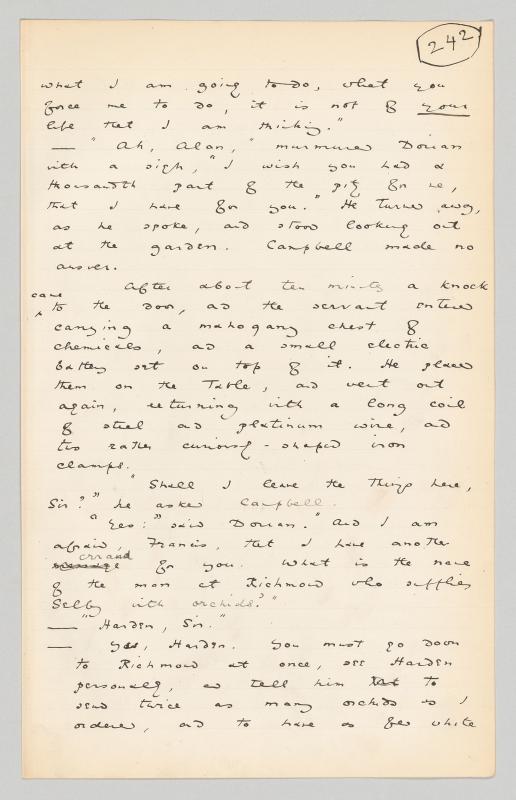 242
what I am going to do, what you
force me to do, it is not of your
life that I am thinking."
— "Ah, Alan," murmured Dorian
with a sigh, "I wish you had a
thousandth part of the pity for me,
that I have for you." He turned away,
as he spoke, and stood looking out
at the garden. Campbell made no
answer.
After about ten minutes a knock
came
to the door, and the servant entered
carrying a mahogany chest of
chemicals, and a small electric
battery set on top of it. He placed
them on the table, and went out
again, returning with a long coil
of steel and platinum wire, and
two rather curiously-shaped iron
clamps.
"Shall I leave the things here,
Sir?" he asked Campbell.
"Yes:" said Dorian. "And I am
afraid, Francis, that I have another
errand
message for you. What is the name
of the man at Richmond who supplies
Selby with orchids?"
— "Harden, Sir."
— Yes, Harden. You must go down
to Richmond at once, see Harden
personally, and tell him that to
send twice as many orchids as I
ordered, and to have as few white